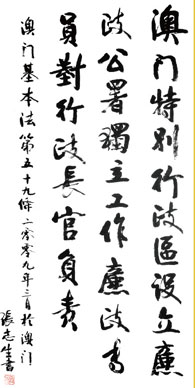 澳门特別行政區設立廉
政公署獨立工作廉政專
員對行政長官負責
澳门基本法第五十九條二〇〇九年三月於澳门
張志生書